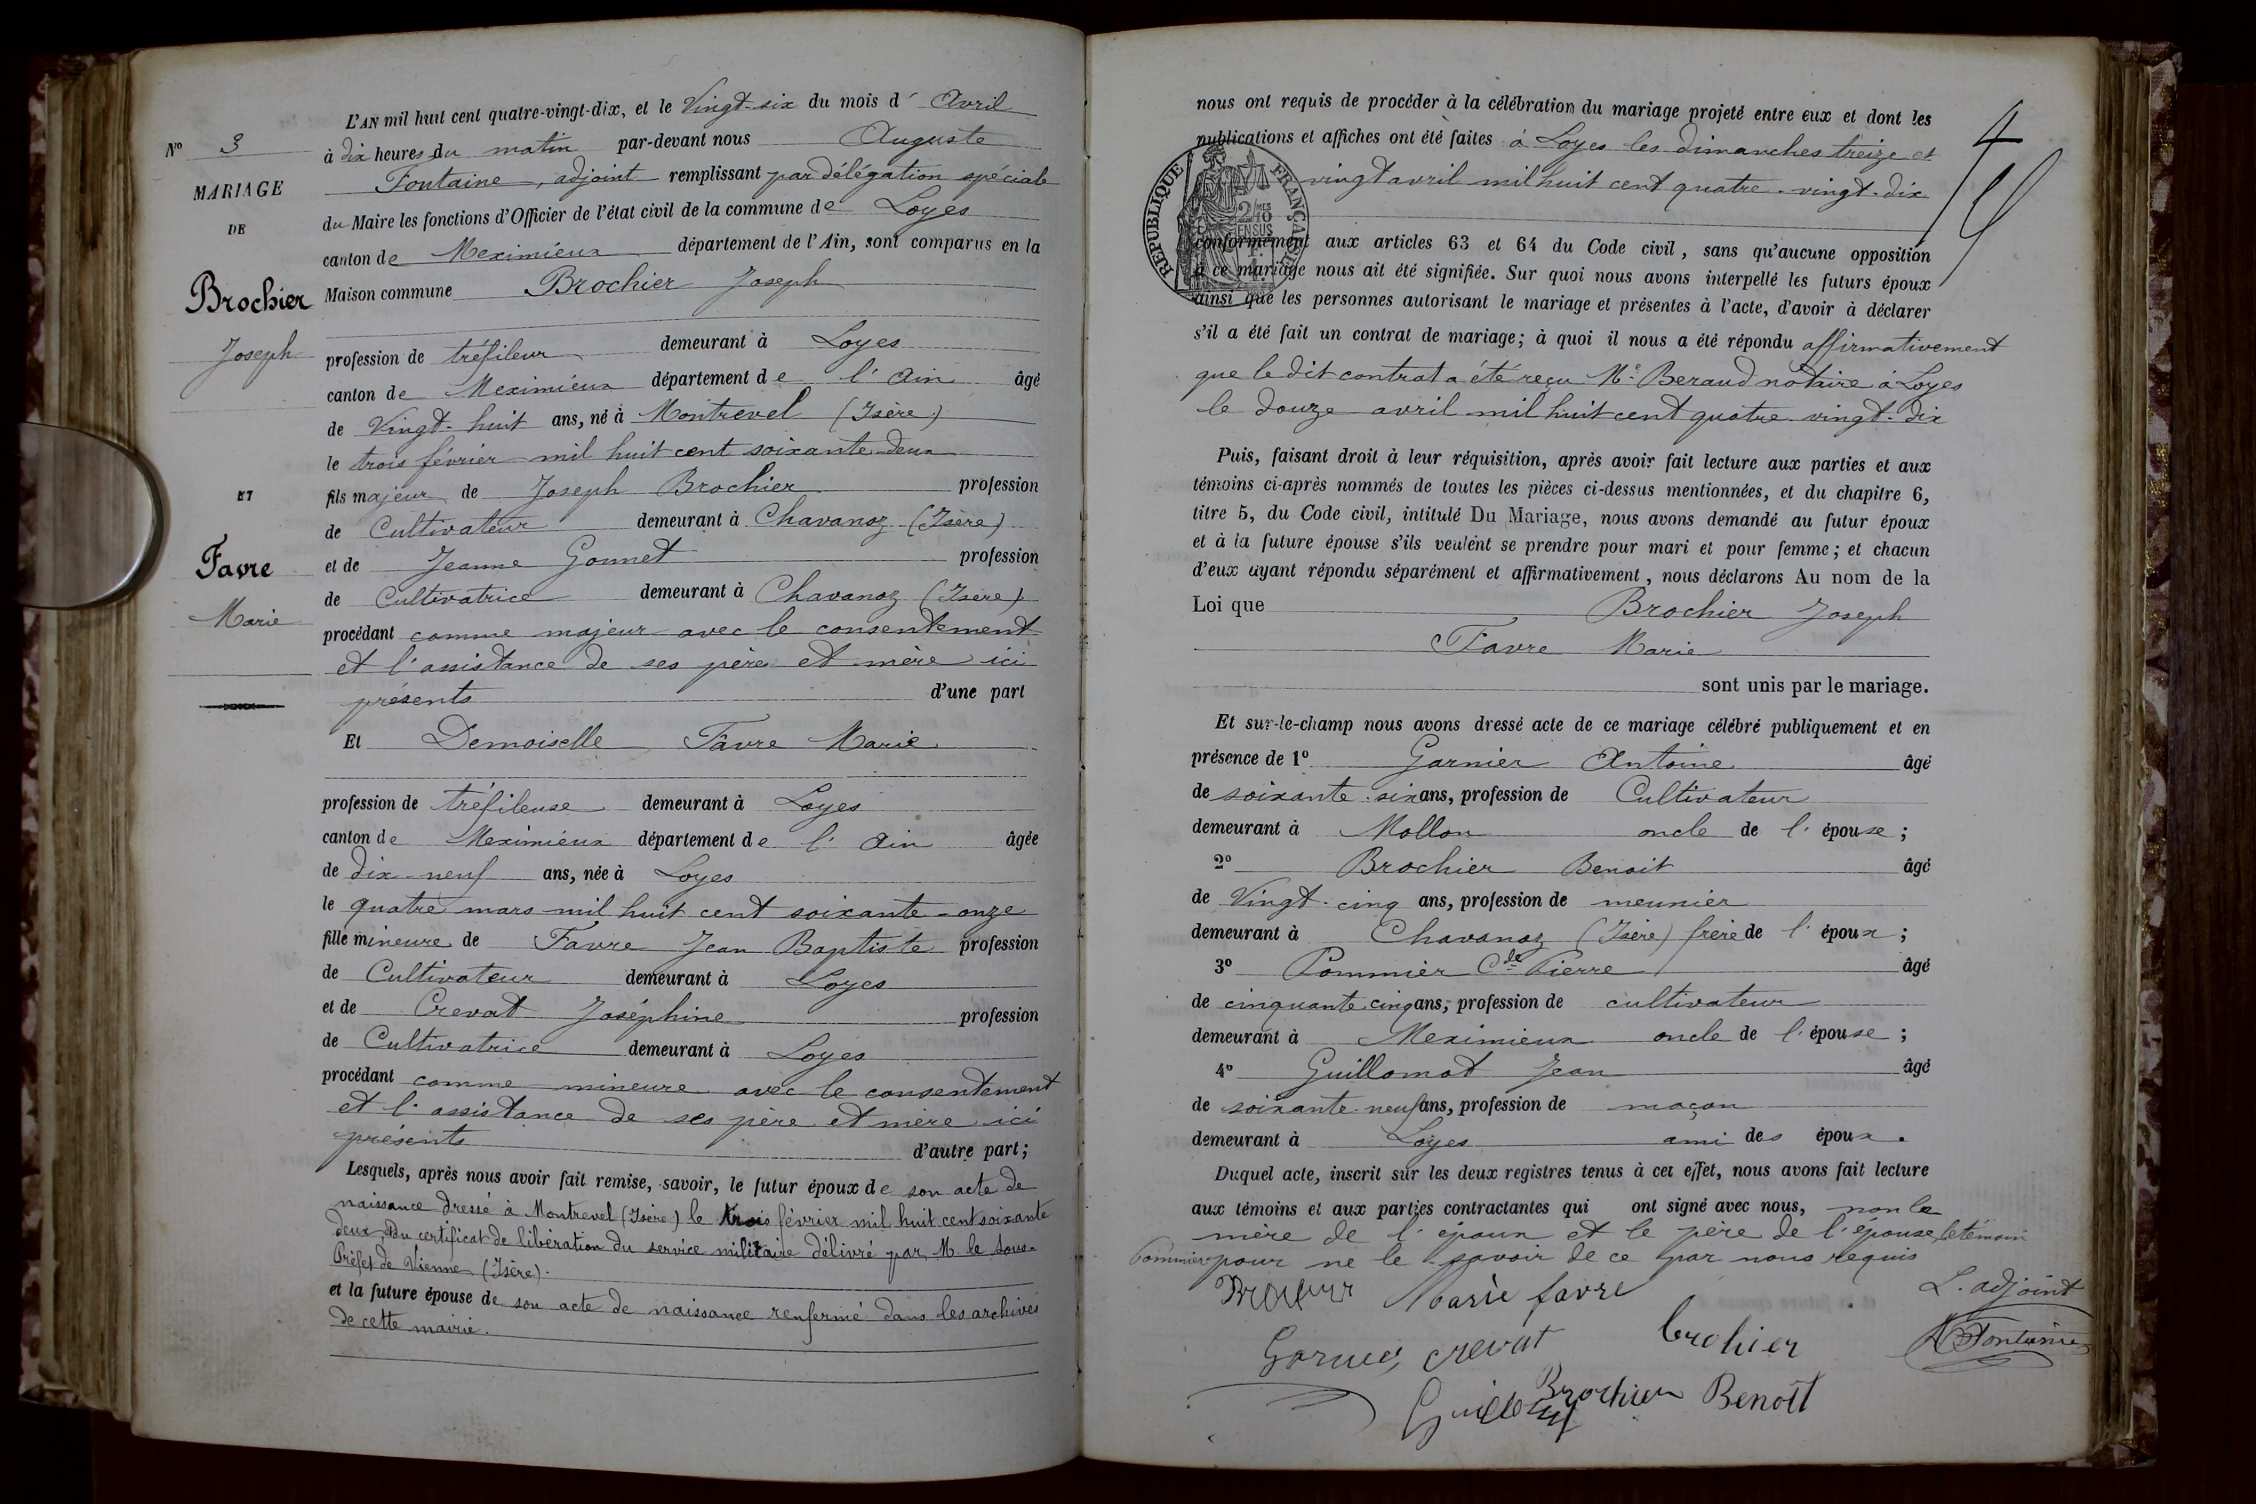 L'AN mil huit cent quatre-vingt-dix, et le Vingt-six du mois d' Avril
à dix heures du matin par-devant nous Auguste
Fontaine, adjoint remplissant par délégation spéciale
du Maire les fonctions d'Officier de l'état civil de la commune de Loyes
canton de Meximieux département de l'Ain, sont comparus en la
Maison commune Brochier Joseph
profession de tréfileur demeurant à Loyes
canton de Meximieux département de l'Ain âgé
de Vingt-huit ans, né à Montrevel (Isère)
le trois février mil huit cent soixante-deux
fils majeur de Joseph Brochier profession
de Cultivateur demeurant à Chavanoz (Isère)
et de Jeanne Gonnet profession
de Cultivatrice demeurant à Chavanoz (Isère)
procédant comme majeur avec le consentement
et l'assistance de ses père et mère ici
présents d'une part
Et Demoiselle Favre Marie
profession de tréfileuse demeurant à Loyes
canton de Meximieux département de l'Ain âgée
de dix-neuf ans, née à Loyes
le quatre mars mil huit cent soixante-onze
fille mineure de Favre Jean Baptiste profession
de Cultivateur demeurant à Loyes
et de Crevat Joséphine profession
de Cultivatrice demeurant à Loyes
procédant comme mineure avec le consentement
et l'assistance de ses père et mère ici
présents d'autre part;
Lesquels, après nous avoir fait remise, savoir, le futur époux de son acte de
naissance dressé à Montrevel (Isère) le trois février mil huit cent soixante
deux, Du certificat de libération du service militaire délivré par M. le Sous-
Préfet de Vienne (Isère).
et la future épouse de son acte de naissance renfermé dans les archives
de cette mairie.
No 3
MARIAGE
DE
Brochier
Joseph
ET
Favre
Marie
nous ont requis de procéder à la célébration du mariage projeté entre eux et dont les
publications et affiches ont été faites à Loyes les dimanches treize et
vingt avril mil huit cent quatre-vingt-dix
conformément aux articles 63 et 64 du Code civil, sans qu'aucune opposition
à ce mariage nous ait été signifiée. Sur quoi nous avons interpellé les futurs époux
ainsi que les personnes autorisant le mariage et présentes à l'acte, d'avoir à déclarer
s'il a été fait un contrat de mariage; à quoi il nous a été répondu affirmativement
que le dit contrat a été reçu Me Beraud notaire à Loyes
le douze avril mil huit cent quatre-vingt-dix
Puis, faisant droit à leur réquisition, après avoir fait lecture aux parties et aux
témoins ci-après nommés de toutes les pièces ci-dessus mentionnées, et du chapitre 6,
titre 5, du Code civil, intitulé Du Mariage, nous avons demandé au futur époux
et à la future épouse s'ils veulent se prendre pour mari et pour femme; et chacun
d'eux ayant répondu séparément et affirmativement, nous déclarons Au nom de la
Loi que Brochier Joseph
Favre Marie
sont unis par le mariage.
Et sur-le-champ nous avons dressé acte de ce mariage célébré publiquement et en
présence de 1º Garnier Antoine âgé
de soixante-six ans, profession de Cultivateur
demeurant à Mollon oncle de l'épouse;
2º Brochier Benoit âgé
de Vingt-cinq ans, profession de meunier
demeurant à Chavanoz (Isère) frère de l'époux;
3º Pommier Cde Pierre âgé
de cinquante-cinq ans, profession de cultivateur
demeurant à Meximieux oncle de l'épouse;
4º Guillomot Jean âgé
de soixante-neuf ans, profession de maçon
demeurant à Loyes ami des époux.
Duquel acte, inscrit sur les deux registres tenus à cet effet, nous avons fait lecture
aux témoins et aux parties contractantes qui ont signé avec nous, non la
mère de l'époux et le père de l'épouse, le témoin
Pommier pour ne le savoir de ce par nous requis
Brochier Marie favre L'adjoint
Garnier crevat brohier A Fontaine
Guillomot Brochier Benoît
RÉPUBLIQUE FRANÇAISE
2/10 MES
EN SUS
4